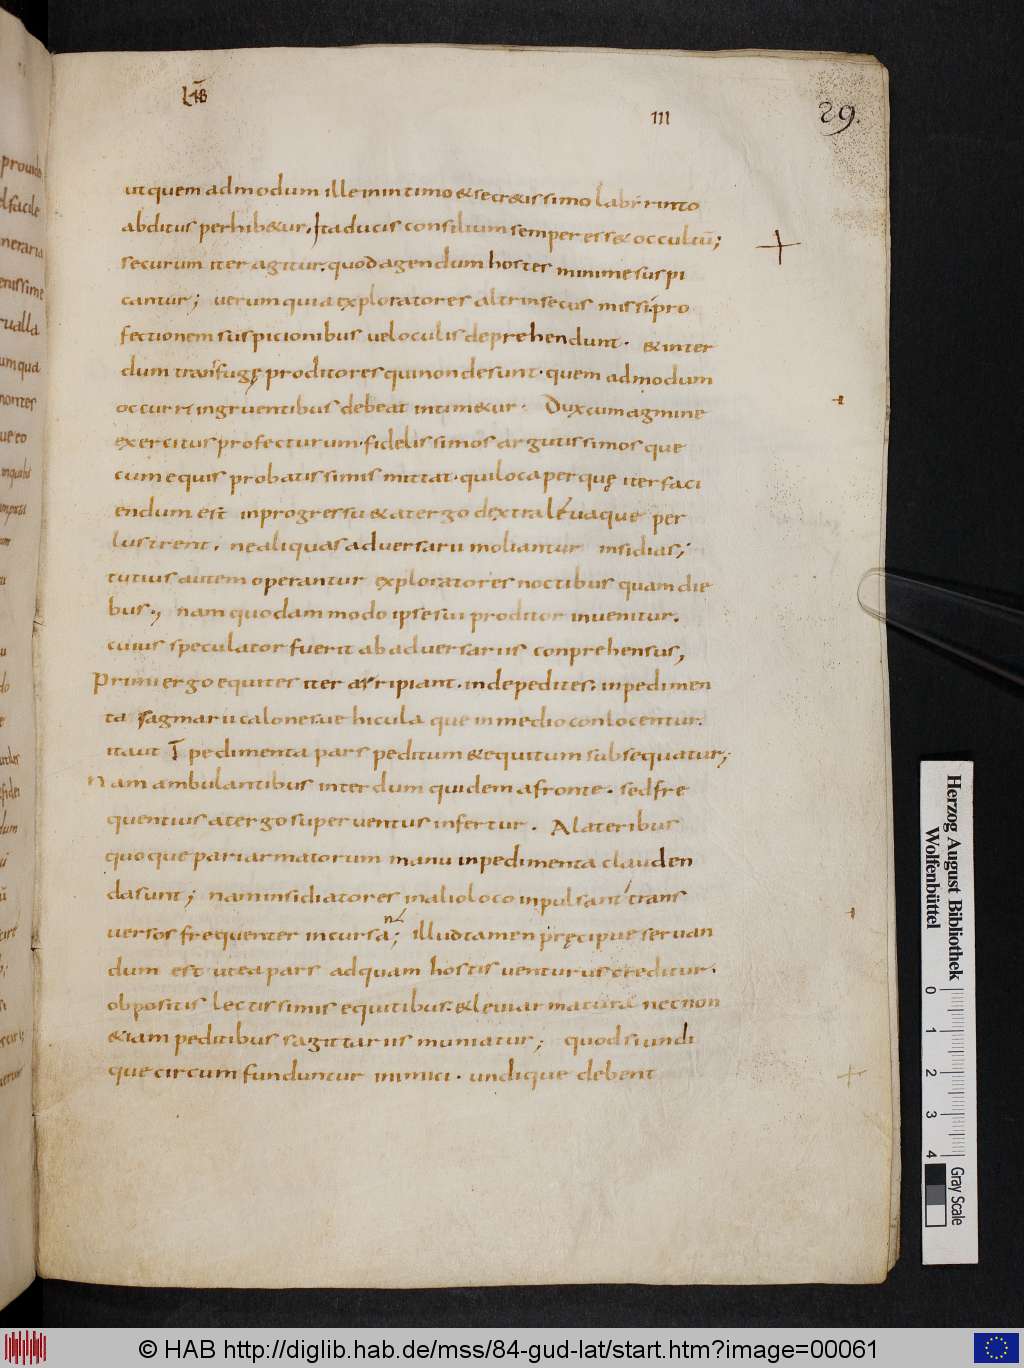 LIB̄
III
29.
ut quem admodum ille inintimo & secr&issimo labirinto
abditus perhib&ur, Ita ducis consilium semper ess& occultū;
securum iter agitur, quod agendum hostes minime suspi
cantur; verum quia exploratores altrinsecus missi pro
fectionem suspicionibus vel oculis deprehendunt. & inter
dum transfugę proditores qui non desunt. quem admodum
occurri ingruentibus debeat intim&ur. Dux cum agmine
exercitus profecturum. fidelissimos argutissimos que
cum equis probatissimis mittat. qui loca per quę iter faci
endum est in progressu & atergo dextra leva que per
lustrent. ne aliquas adversarii moliantur insidias;
tutius autem operantur exploratores noctibus quam die
bus, nam quodam modo ipse sui proditor invenitur.
cuius speculator fuerit ab adversariis conprehensus,
Primi ergo equites iter arripiant. inde pedites. inpedimen
ta sagmarii calones vehicula que in medio conlocentur.
ita ut Inpedimenta pars peditum & equitum subsequatur;
Nam ambulantibus interdum quidem afronte. sed fre
quentius atergo superventus infertur. Alateribus
quoque pari armatorum manu inpedimenta clauden
da sunt; nam insidiatores in alio loco inpulsant trans
versos frequenter incursa; illud tamen pręcipue servan
dum est ut ea pars ad quam hostis venturus creditur.
obpositis lectissimis equitibus. & levi armatura nec non
&iam peditibus sagittariis muniatur; quod si undi
que circumfunduntur inimici. undique debent
Herzog August Bibliothek
Wolfenbüttel
0 1 2 3 4
Gray Scale
© HAB http://diglib.hab.de/mss/84-gud-lat/start.htm?image=00061